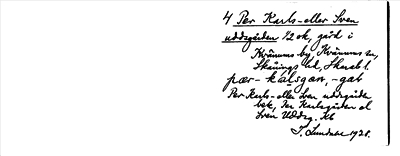 4 Per Karls- eller Sven
uddsgården 1/2 ok, gård i
Kvänums by, Kvänums sn,
Skånings hd, Skarab l.
pær- kalsgan, -gat
Per Karls- eller Sven uddsgården
bsk, Per Karlsgården el
Sven Uddsg. Kb
S. Lundahl 1928.